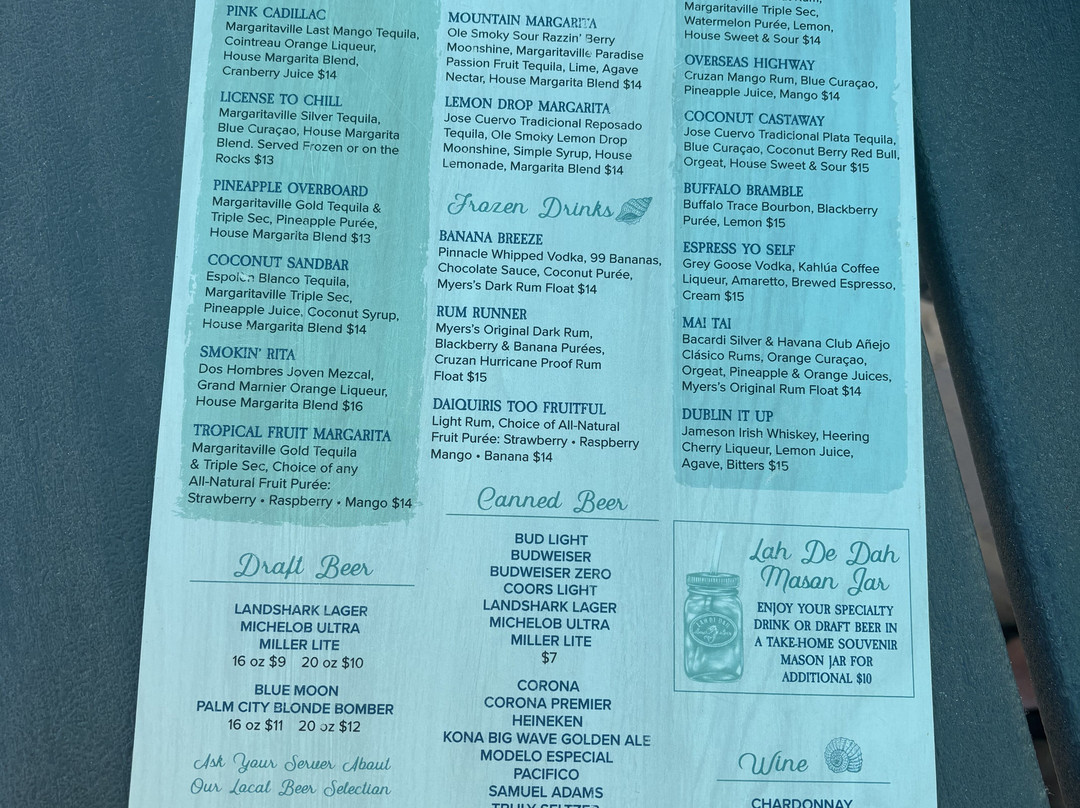 PINK CADILLAC
Margaritaville Last Mango Tequila,
Cointreau Orange Liqueur,
House Margarita Blend,
Cranberry Juice $14
LICENSE TO CHILL
Margaritaville Silver Tequila,
Blue Curaçao, House Margarita
Blend. Served Frozen or on the
Rocks $13
PINEAPPLE OVERBOARD
Margaritaville Gold Tequila &
Triple Sec, Pineapple Purée,
House Margarita Blend $13
COCONUT SANDBAR
Espolòn Blanco Tequila,
Margaritaville Triple Sec,
Pineapple Juice, Coconut Syrup,
House Margarita Blend $14
SMOKIN' RITA
Dos Hombres Joven Mezcal,
Grand Marnier Orange Liqueur,
House Margarita Blend $16
TROPICAL FRUIT MARGARITA
Margaritaville Gold Tequila
& Triple Sec, Choice of any
All-Natural Fruit Purée:
Strawberry • Raspberry • Mango $14
Draft Beer
LANDSHARK LAGER
MICHELOB ULTRA
MILLER LITE
16 oz $9 20 oz $10
BLUE MOON
PALM CITY BLONDE BOMBER
16 oz $11 20 oz $12
Ask Your Server About
Our Local Beer Selection
MOUNTAIN MARGARITA
Ole Smoky Sour Razzin' Berry
Moonshine, Margaritaville Paradise
Passion Fruit Tequila, Lime, Agave
Nectar, House Margarita Blend $14
LEMON DROP MARGARITA
Jose Cuervo Tradicional Reposado
Tequila, Ole Smoky Lemon Drop
Moonshine, Simple Syrup, House
Lemonade, Margarita Blend $14
Frozen Drinks
BANANA BREEZE
Pinnacle Whipped Vodka, 99 Bananas,
Chocolate Sauce, Coconut Purée,
Myers's Dark Rum Float $14
RUM RUNNER
Myers's Original Dark Rum,
Blackberry & Banana Purées,
Cruzan Hurricane Proof Rum
Float $15
DAIQUIRIS TOO FRUITFUL
Light Rum, Choice of All-Natural
Fruit Purée: Strawberry • Raspberry
Mango • Banana $14
Canned Beer
BUD LIGHT
BUDWEISER
BUDWEISER ZERO
COORS LIGHT
LANDSHARK LAGER
MICHELOB ULTRA
MILLER LITE
$7
CORONA
CORONA PREMIER
HEINEKEN
KONA BIG WAVE GOLDEN ALE
MODELO ESPECIAL
PACIFICO
SAMUEL ADAMS
TRULY SELTZER
Margaritaville Triple Sec,
Watermelon Purée, Lemon,
House Sweet & Sour $14
OVERSEAS HIGHWAY
Cruzan Mango Rum, Blue Curaçao,
Pineapple Juice, Mango $14
COCONUT CASTAWAY
Jose Cuervo Tradicional Plata Tequila,
Blue Curaçao, Coconut Berry Red Bull,
Orgeat, House Sweet & Sour $15
BUFFALO BRAMBLE
Buffalo Trace Bourbon, Blackberry
Purée, Lemon $15
ESPRESS YO SELF
Grey Goose Vodka, Kahlúa Coffee
Liqueur, Amaretto, Brewed Espresso,
Cream $15
MAI TAI
Bacardi Silver & Havana Club Añejo
Clásico Rums, Orange Curaçao,
Orgeat, Pineapple & Orange Juices,
Myers's Original Rum Float $14
DUBLIN IT UP
Jameson Irish Whiskey, Heering
Cherry Liqueur, Lemon Juice,
Agave, Bitters $15
Lah De Dah
Mason Jar
ENJOY YOUR SPECIALTY
DRINK OR DRAFT BEER IN
A TAKE-HOME SOUVENIR
MASON JAR FOR
ADDITIONAL $10
Wine
CHARDONNAY